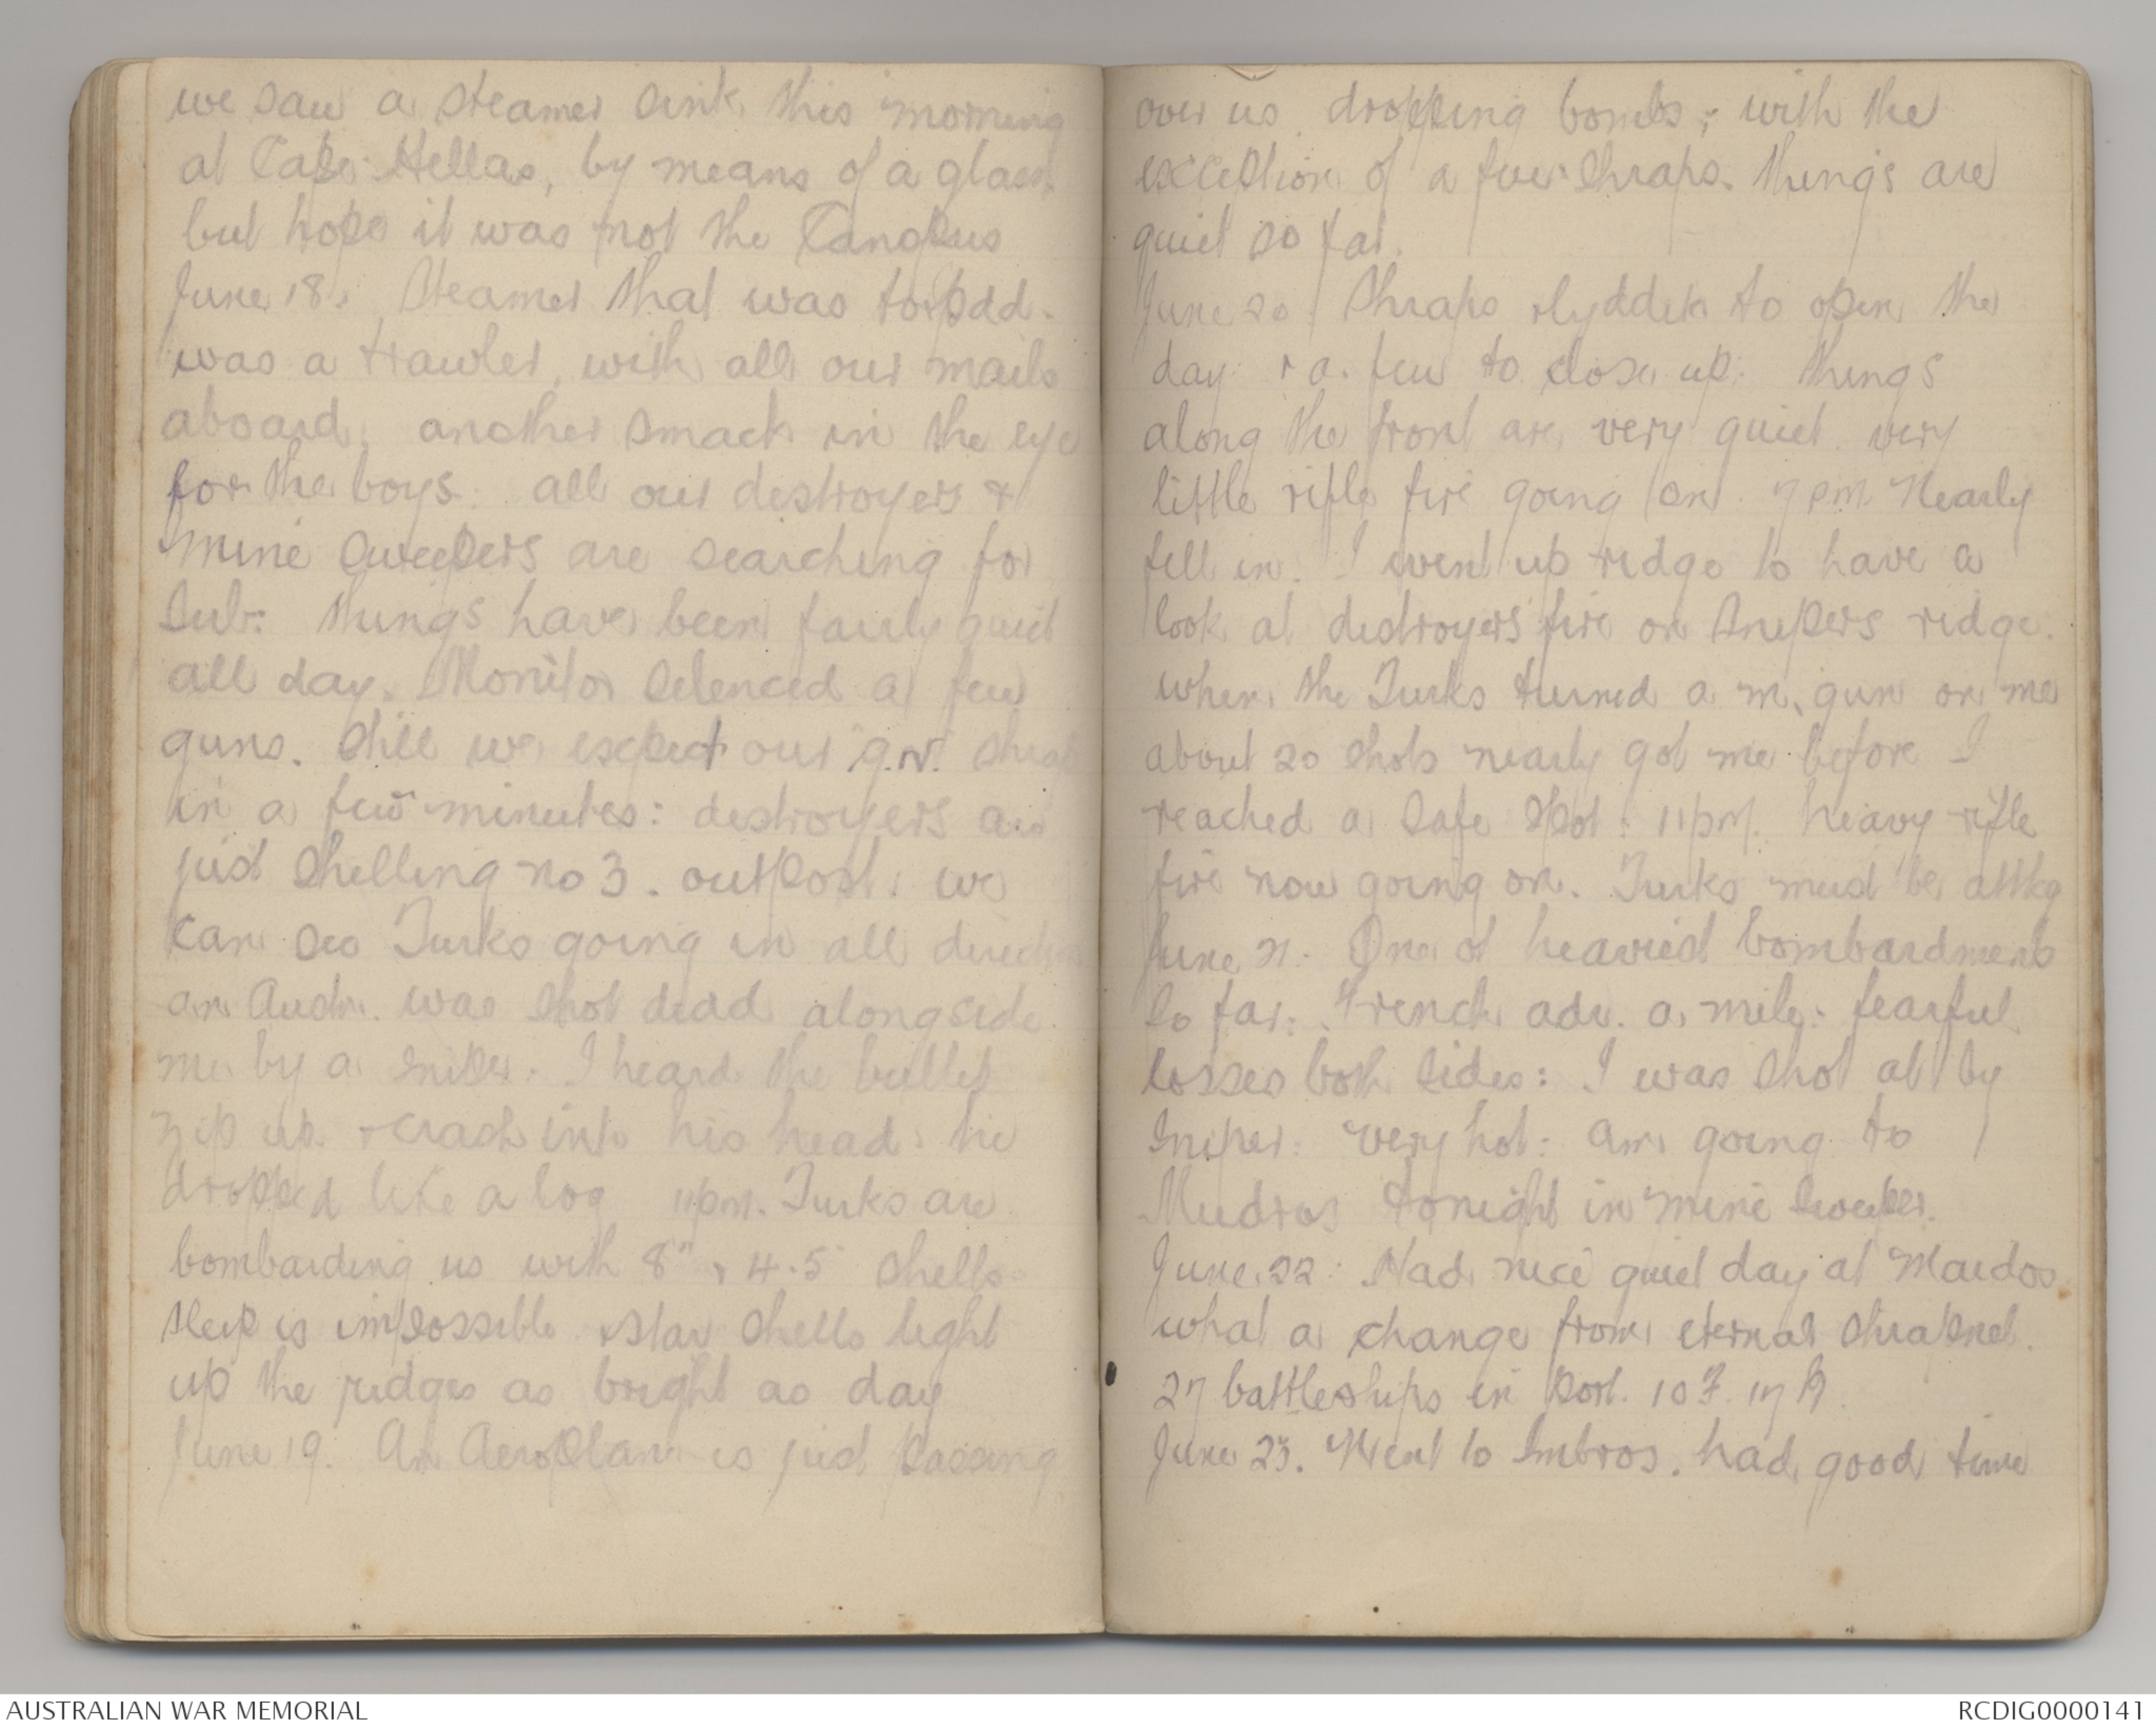 we saw a steamer sink this morning
at Cape Hellas, by means of a glass
but hope it was not the
June 18. Steamer that was torpdd.
was a trawler, with all our mails
aboard. another smack in the eye
for the boys. all our destroyers &
mine sweepers are searching for
Sub: things have been fairly quiet
all day. Monitor silenced a few
guns. Still we expect our g.n. shrap
in a few minutes: destroyers are
just shelling no 3. outpost. we
can see Turks going in all direction
an Austn. was shot dead alongside
me by a sniper. I heard the bullet
zip up & crash into his head: he
dropped like a log 11pm. Turks are
bombarding us with 8" & 4.5 shells
sleep is impossible. star shells light
up the ridges as bright as day
June 19. An Aeroplane is just passing
over us dropping bombs; with the
exception of a few shraps. things are
quiet so far.
June 20. Shraps & lyddite to open the
day & a few to close up. things
along the front are very quiet. very
little rifle fire going on. 7pm. Nearly
fell in. I went up ridge to have a
look at destroyers fire on Snipers ridge.
when the Turks turned a m. gun on me
about 20 shots nearly got me before I
reached a safe spot: 11pm. heavy rifle
fire now going on. Turks must be attkg
June 21. One of heaviest bombardments
so far: French adv. a mile: fearful
losses both sides: I was shot at by
sniper. very hot: am going to
Mudros tonight in mine sweeper.
June 22: Had nice quiet day at Maidos
what a change from eternal shrapnel.
27 battleships in port. 10 F. 17 B.
June 23. Went to Imbros. had good time
AUSTRALIAN WAR MEMORIAL
RCDIG0000141